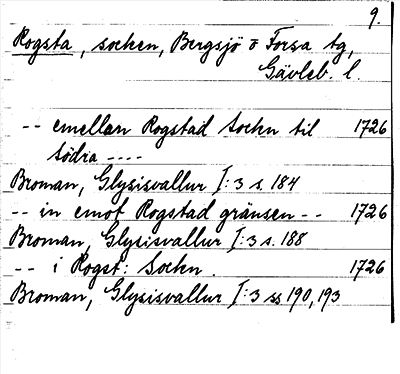 9.
Rogsta, socken, Bergsjö o Forsa tg,
Gävleb. l.
-- emellan Rogstad Sockn til 1726
södra ----
Broman, Glysisvallur I:3 s. 184
-- in emot Rogstad gränsen -- 1726
Broman, Glysisvallur I:3 s. 188
-- i Rogst: Sockn. 1726
Broman, Glysisvallur I:3 ss 190, 193